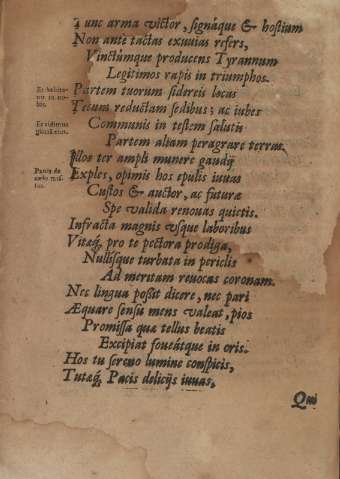 Tunc arma victor, signáque & hostium
Non antè tactas exuuias refers,
Vinctúmque producens Tyrannum
Legitimos rapis in triumphos.
Partem tuorum sidereis locas
Tecum reductam sedibus; ac iubes
Communis in testem salutis
Partem aliam peragrare terras.
Illos ter ampli munere gaudij
Exples, opimis hos epulis iuuas
Custos & auctor, ac futuræ
Spe valida renouas quietis.
Infracta magnis vsque laboribus
Vitæq́; pro te pectora prodiga,
Nullisque turbata in periclis
Ad meritam reuocas coronam.
Nec lingua possit dicere, nec pari
Æquare sensu mens valeat, pios
Promissa quæ tellus beatis
Excipiat foueátque in oris.
Hos tu sereno lumine conspicis,
Tutæq́; Pacis delicijs iuuas,
Qui
Et habita-
uit in no-
bis.
Et vidimus
gloriã eius.
Panis de